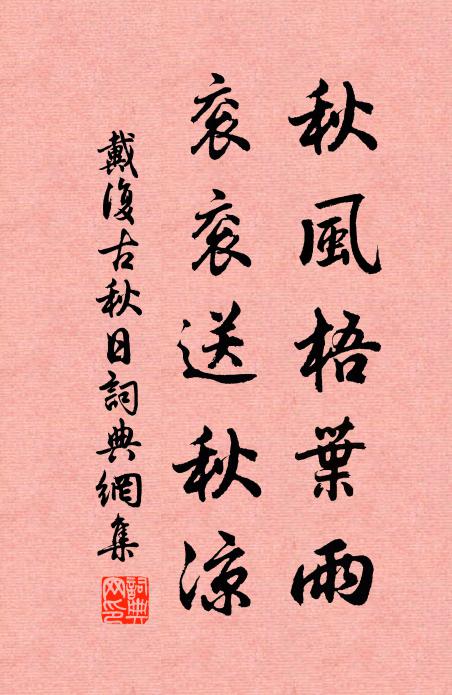 秋風梧葉雨
衮衮送秋涼
戴復古秋日詞典網集
詞典網印